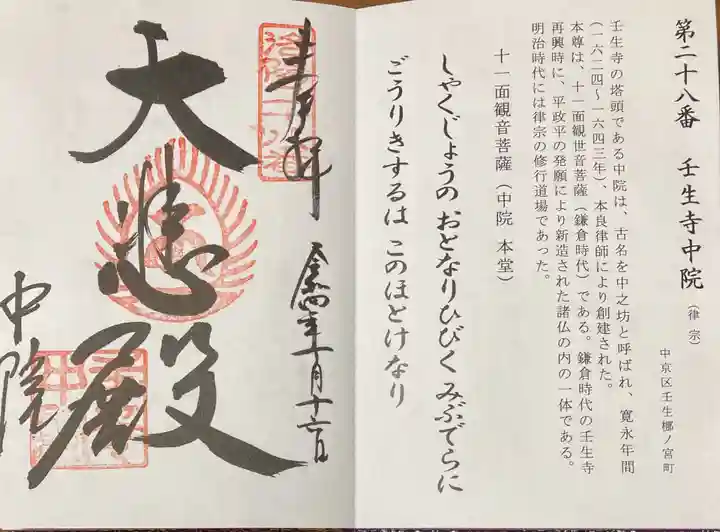 第二十八番 壬生寺中院(律宗)
中京区壬生梛ノ宮町
壬生寺の塔頭である中院は、古名を中之坊と呼ばれ、寛永年間
(一六二四〜一六四三年)、本良律師により創建された。
本尊は、十一面観世音菩薩(鎌倉時代)である。鎌倉時代の壬生寺
再興時に、平政平の発願により新造された諸仏の内の一体である。
明治時代には律宗の修行道場であった。
十一面観音菩薩(中院 本堂)
しゃくじょうの おとなりひびく みぶでらに
ごうりきするは このほとけなり
奉拝
令和四年一月十七日
洛陽二八番
大悲殿
中院